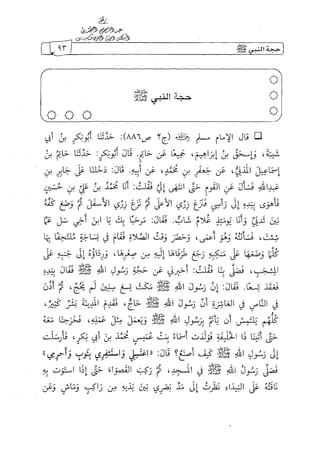 حجة النبي ﷺ
٩٣
حجة النبي ﷺ
قال الإمام مسلم رحمه الله (ج٢ ص٨٨٦): حَدَّثَنَا أَبُو بَكْرِ بْنُ أَبِي
شَيْبَةَ، وَإِسْحَقُ بْنُ إِبْرَاهِيمَ، جَمِيعًا عَنْ حَاتِمٍ. قَالَ أَبُو بَكْرٍ: حَدَّثَنَا حَاتِمُ بْنُ
إِسْمَاعِيلَ الْمَدَنِيُّ، عَنْ جَعْفَرِ بْنِ مُحَمَّدٍ، عَنْ أَبِيهِ. قَالَ: دَخَلْنَا عَلَى جَابِرِ بْنِ
عَبْدِاللهِ فَسَأَلَ عَنِ الْقَوْمِ حَتَّى انْتَهَى إِلَيَّ فَقُلْتُ: أَنَا مُحَمَّدُ بْنُ عَلِيِّ بْنِ حُسَيْنٍ
فَأَهْوَى بِيَدِهِ إِلَى رَأْسِي فَنَزَعَ زِرِّي الْأَعْلَى ثُمَّ نَزَعَ زِرِّي الْأَسْفَلَ ثُمَّ وَضَعَ كَفَّهُ
بَيْنَ ثَدْيَيَّ وَأَنَا يَوْمَئِذٍ غُلَامٌ شَابٌّ. فَقَالَ: مَرْحَبًا بِكَ يَا ابْنَ أَخِي سَلْ عَمَّا
شِئْتَ، فَسَأَلْتُهُ وَهُوَ أَعْمَى، وَحَضَرَ وَقْتُ الصَّلَاةِ فَقَامَ فِي نِسَاجَةٍ مُلْتَحِفًا بِهَا
كُلَّمَا وَضَعَهَا عَلَى مَنْكِبِهِ رَجَعَ طَرَفَاهَا إِلَيْهِ مِنْ صِغَرِهَا، وَرِدَاؤُهُ إِلَى جَنْبِهِ عَلَى
الْمِشْجَبِ، فَصَلَّى بِنَا فَقُلْتُ: أَخْبِرْنِي عَنْ حَجَّةِ رَسُولِ اللهِ ﷺ فَقَالَ بِيَدِهِ
فَعَقَدَ تِسْعًا. فَقَالَ: إِنَّ رَسُولَ اللهِ ﷺ مَكَثَ تِسْعَ سِنِينَ لَمْ يَحُجَّ، ثُمَّ أَذَّنَ
فِي النَّاسِ فِي الْعَاشِرَةِ أَنَّ رَسُولَ اللهِ ﷺ حَاجٌّ، فَقَدِمَ الْمَدِينَةَ بَشَرٌ كَثِيرٌ،
كُلُّهُمْ يَلْتَمِسُ أَنْ يَأْتَمَّ بِرَسُولِ اللهِ ﷺ وَيَعْمَلَ مِثْلَ عَمَلِهِ، فَخَرَجْنَا مَعَهُ
حَتَّى أَتَيْنَا ذَا الْحُلَيْفَةِ فَوَلَدَتْ أَسْمَاءُ بِنْتُ عُمَيْسٍ مُحَمَّدَ بْنَ أَبِي بَكْرٍ، فَأَرْسَلَتْ
إِلَى رَسُولِ اللهِ ﷺ كَيْفَ أَصْنَعُ؟ قَالَ: «اغْتَسِلِي وَاسْتَثْفِرِي بِثَوْبٍ وَأَحْرِمِي»
فَصَلَّى رَسُولُ اللهِ ﷺ فِي الْمَسْجِدِ، ثُمَّ رَكِبَ الْقَصْوَاءَ حَتَّى إِذَا اسْتَوَتْ بِهِ
نَاقَتُهُ عَلَى الْبَيْدَاءِ نَظَرْتُ إِلَى مَدِّ بَصَرِي بَيْنَ يَدَيْهِ مِنْ رَاكِبٍ وَمَاشٍ وَعَنْ